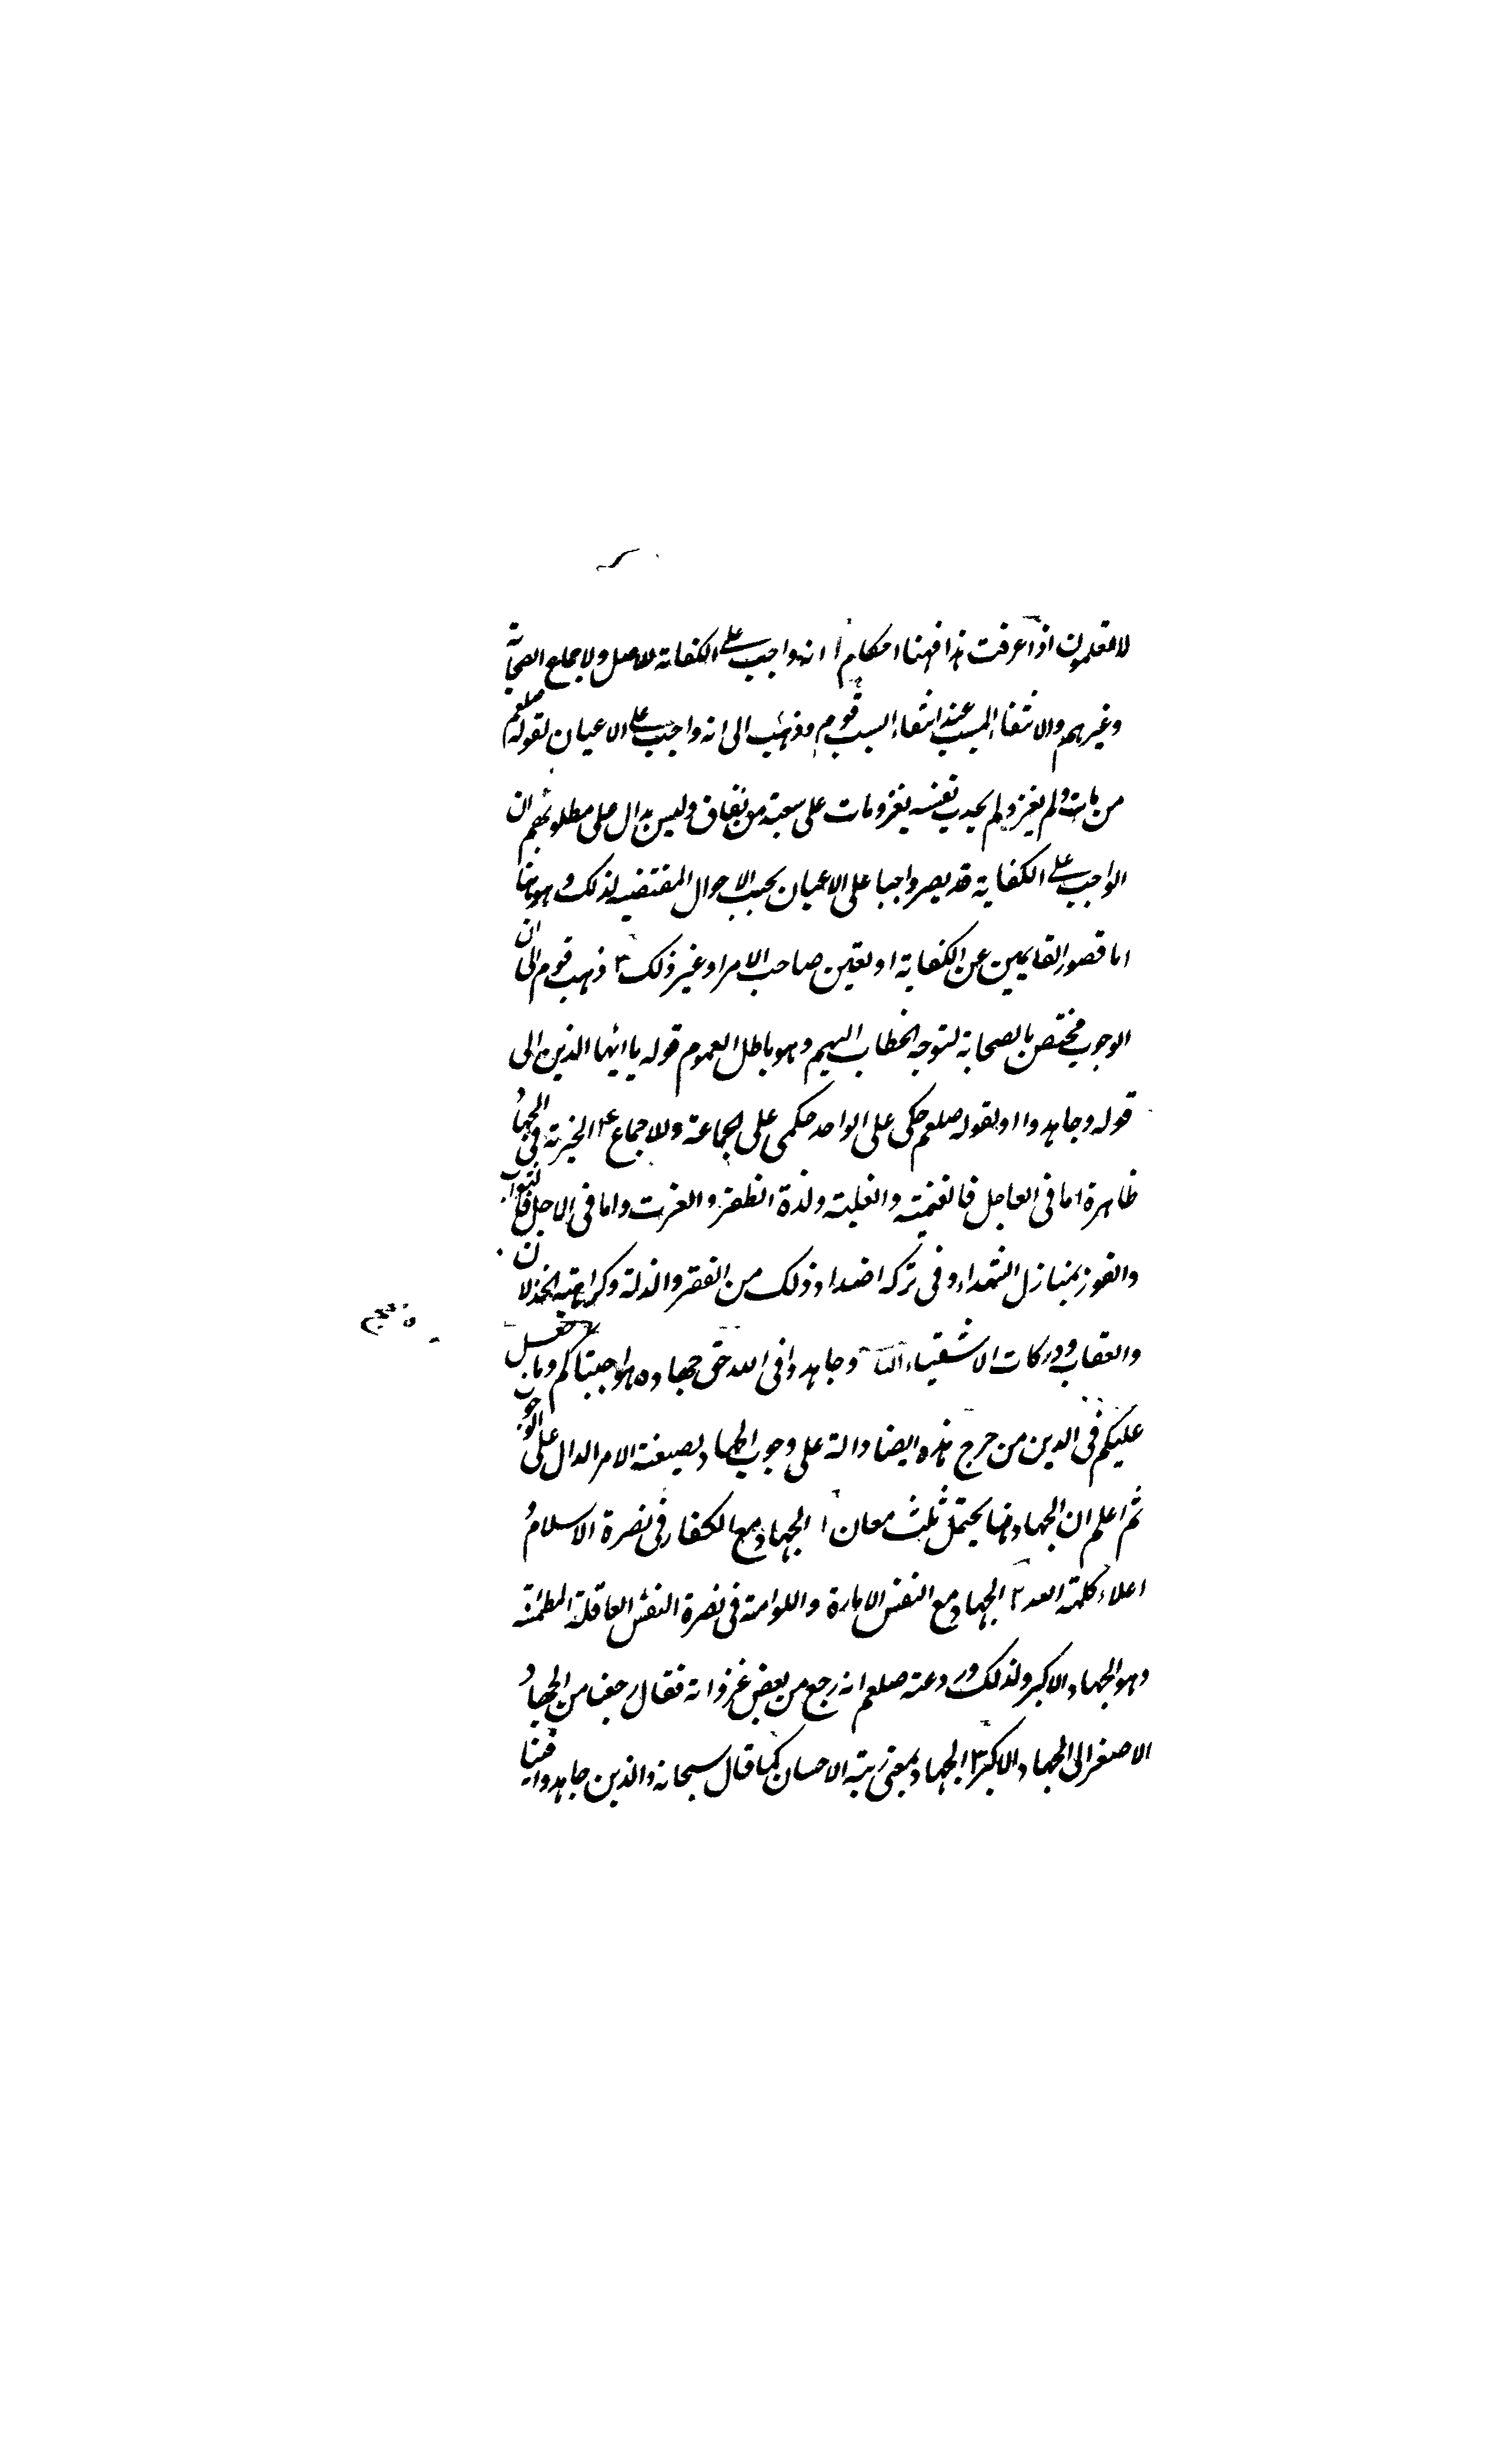 لا تعلمون اذا عرفت هذا فهنا احكام ا انه واجب على الكفاية للاصل ولاجماع الصحابة
وغيرهم ولانتفاء المسبب عند انتفاء السبب قوم وذهب الى انه واجب على الاعيان لقوله صلعم
من مات ولم يغز ولم يحدث نفسه بغزو مات على شعبة من نفاق وليس بدال على مطلوبهم ان
الواجب على الكفاية قد يصير واجبا على الاعيان بحسب الاحوال المقتضيه لذلك وهو هنا
اما قصور القايمين عن الكفاية او تعيين صاحب الامر او غير ذلك ٣ ذهب قوم الى ان
الوجوب مختص بالصحابة لتوجه الخطاب اليهم وهو باطل لعموم قوله يا ايها الذين الى
قوله وجاهدوا او لقوله صلعم حكمى على الواحد حكمى على الجماعة وللاجماع ٤ الخيرية فى الجهاد
ظاهرة اما فى العاجل فالغنيمة والغلبة ولذة الظفر والعزت واما فى الاجل فالثواب
والفوز بمنازل الشهداء وفى تركه اضداد ذلك من الفقر والذلة وكراهية الخذلان
والعقاب ودركات الاشقياء وجاهدوا فى الله حق جهاده هو اجتباكم وما جعل
عليكم فى الدين من حرج هذه ايضا دالة على وجوب الجهاد بصيغة الامر الدال على الوجوب
ثم اعلم ان الجهاد هنا يحتمل ثلث معان ا الجهاد مع الكفار فى نصرة الاسلام و
اعلاء كلمة الله ٢ الجهاد مع النفس الامارة واللوامة فى نصرة النفس العاقلة المطمئنة
وهو الجهاد الاكبر ولذلك ورد عنه صلعم انه رجع من بعض غزواته فقال رجعنا من الجهاد
الاصغر الى الجهاد الاكبر ٣ الجهاد بمعنى رتبة الاحسان كما قال سبحانه والذين جاهدوا فينا